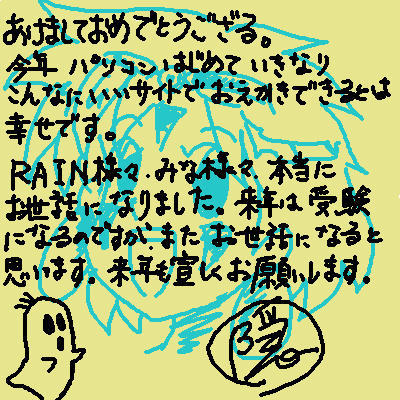 あけましておめでとうござる。
今年 パソコンはじめて いきなり
こんなにいいサイトで おえかきできるとは
幸せです。
RAIN様々、みな様々、本当に
お世話に なりました。来年は 受験
になるのですが、また お世話になると
思います。来年も宜しくお願いします。